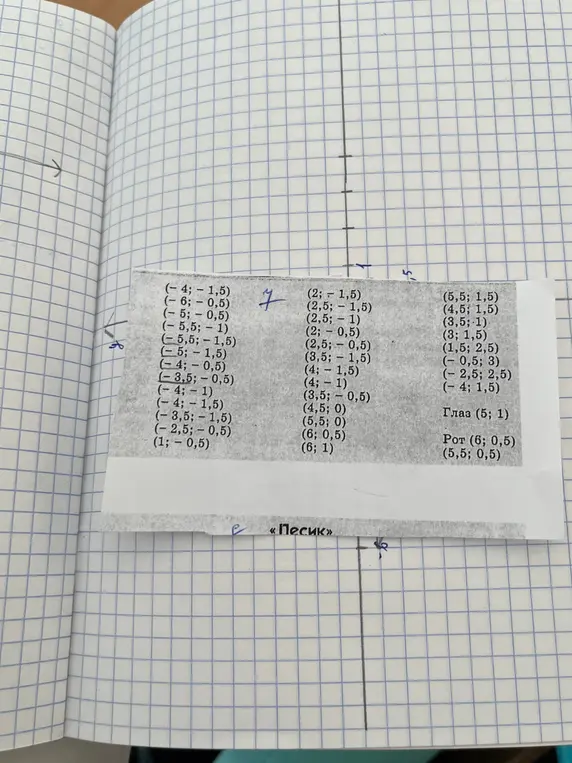 1
(– 4; – 1,5)
(– 6; – 0,5)
(– 5; – 0,5)
(– 5,5; – 1)
(– 5,5; – 1,5)
(– 5; – 1,5)
(– 4; – 0,5)
(– 3,5; – 0,5)
(– 4; – 1)
(– 4; – 1,5)
(– 3,5; – 1,5)
(– 2,5; – 0,5)
(1; – 0,5)
7
(2; – 1,5)
(2,5; – 1,5)
(2,5; – 1)
(2; – 0,5)
(2,5; – 0,5)
(3,5; – 1,5)
(4; – 1,5)
(4; – 1)
(3,5; – 0,5)
(4,5; 0)
(5,5; 0)
(6; 0,5)
(6; 1)
(5,5; 1,5)
(4,5; 1,5)
(3,5; 1)
(3; 1,5)
(1,5; 2,5)
(– 0,5; 3)
(– 2,5; 2,5)
(– 4; 1,5)
Глаз (5; 1)
Рот (6; 0,5)
(5,5; 0,5)
«Песик»